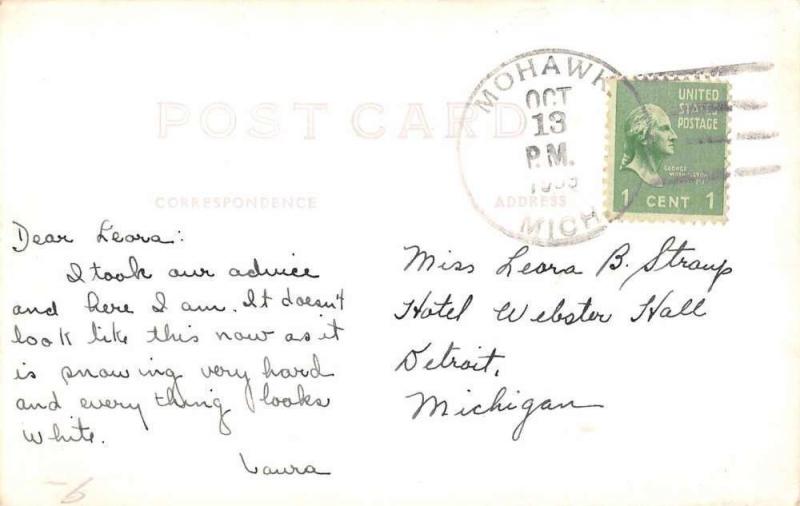 POST CARD
CORRESPONDENCE
ADDRESS
MOHAWK
OCT
13
P.M.
MICH
UNITED
STATES
POSTAGE
GEORGE
WASHINGTON
1 CENT 1
Dear Leora:
I took our advice
and here I am. It doesn't
look like this now as it
is snowing very hard
and every thing looks
white.
Laura
Miss Leora B. Straup
Hotel Webster Hall
Detroit,
Michigan
-6